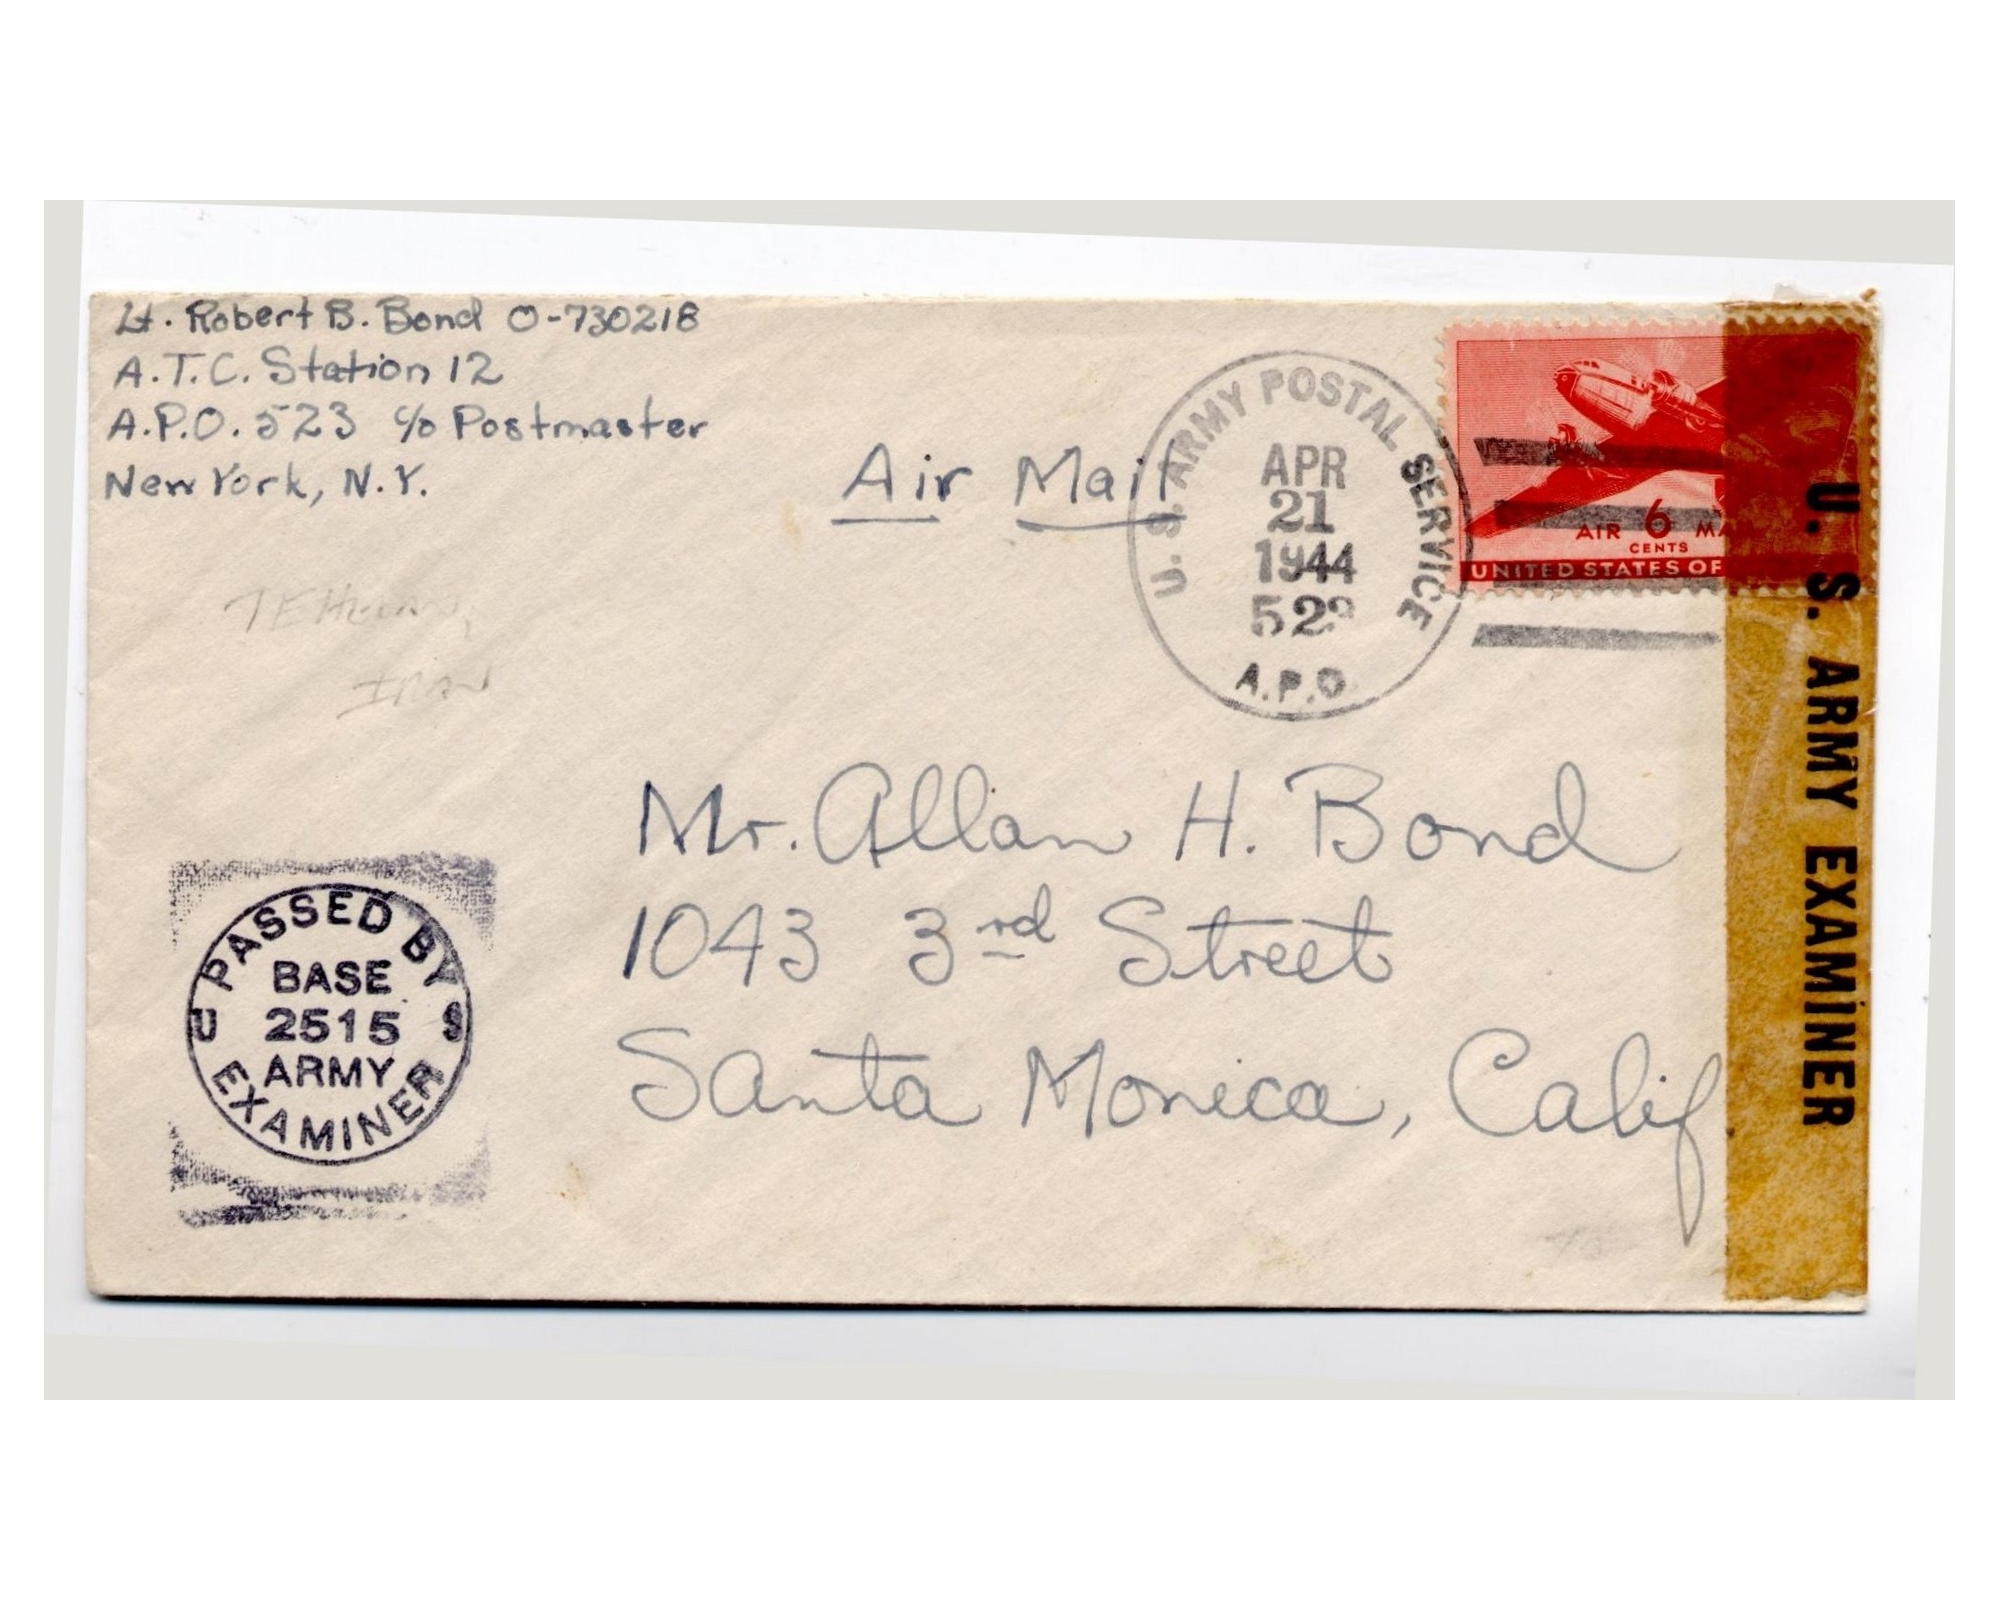 Lt. Robert B. Bond O-730218
A.T.C. Station 12
A.P.O. 523 c/o Postmaster
New York, N.Y.
Air Mail
U. S. ARMY POSTAL SERVICE
APR
21
1944
523
A.P.O.
AIR 6 MA
CENTS
UNITED STATES OF
U. S. ARMY EXAMINER
TEHERAN,
IRAN
Mr. Allan H. Bond
1043 3rd Street
Santa Monica, Calif
PASSED BY
BASE
U 2515 S
ARMY
EXAMINER